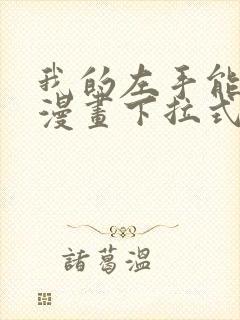 我的左手能
漫畫下拉式
諸葛溫